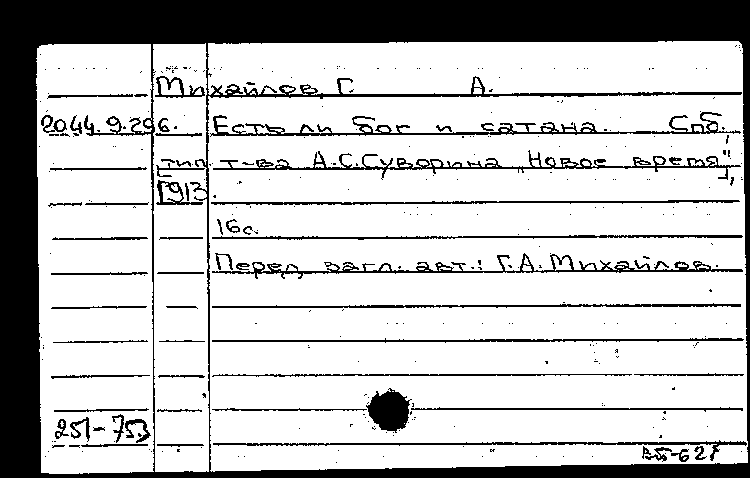 Михайлов, Г. А.
20.44.9.296. Есть ли бог и сатана. Спб.
тип. т-ва А.С.Суворина „Новое время",
[1913].
16с.
Перед загл. авт.: Г.А.Михайлов.
251-753